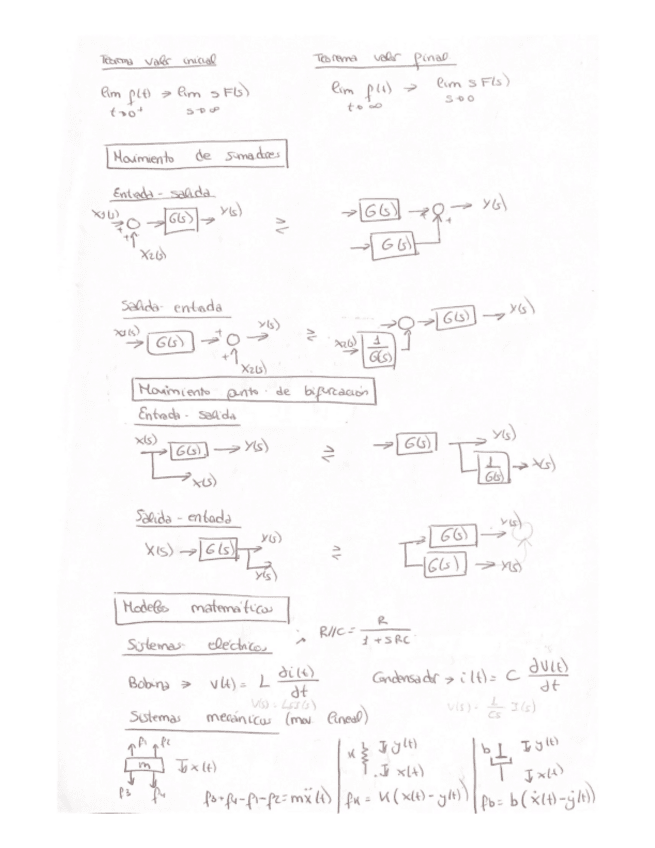 Teorema valor inicial
Teorema valor final
lim f(t) → lim s F(s)
t→0⁺ s→∞
lim f(t) → lim s F(s)
t→∞ s→0
Movimiento de sumadores
Entrada - salida
X1(s) + G(s) Y(s) + X2(s) ⇄ G(s) + Y(s) + G(s)
Salida - entrada
X1(s) G(s) + Y(s) + X2(s) ⇄ G(s) Y(s) X2(s) 1/G(s)
Movimiento punto de bifurcación
Entrada - salida
X(s) G(s) Y(s) X(s) ⇄ G(s) Y(s) 1/G(s) X(s)
Salida - entrada
X(s) G(s) Y(s) Y(s) ⇄ G(s) Y(s) G(s) Y(s)
Modelos matemáticos
R//C = R / 1+SRC
Sistemas eléctricos
Bobina → v(t) = L di(t)/dt
Condensador → i(t) = C dV(t)/dt
V(s) = LsI(s)
V(s) = 1/Cs I(s)
Sistemas mecánicos (mov lineal)
f1 f2 m x(t) f3 f4
f3+f4-f1-f2 = mẍ(t)
K y(t) x(t)
fK = K(x(t) - y(t))
b y(t) x(t)
fb = b(ẋ(t) - ẏ(t))